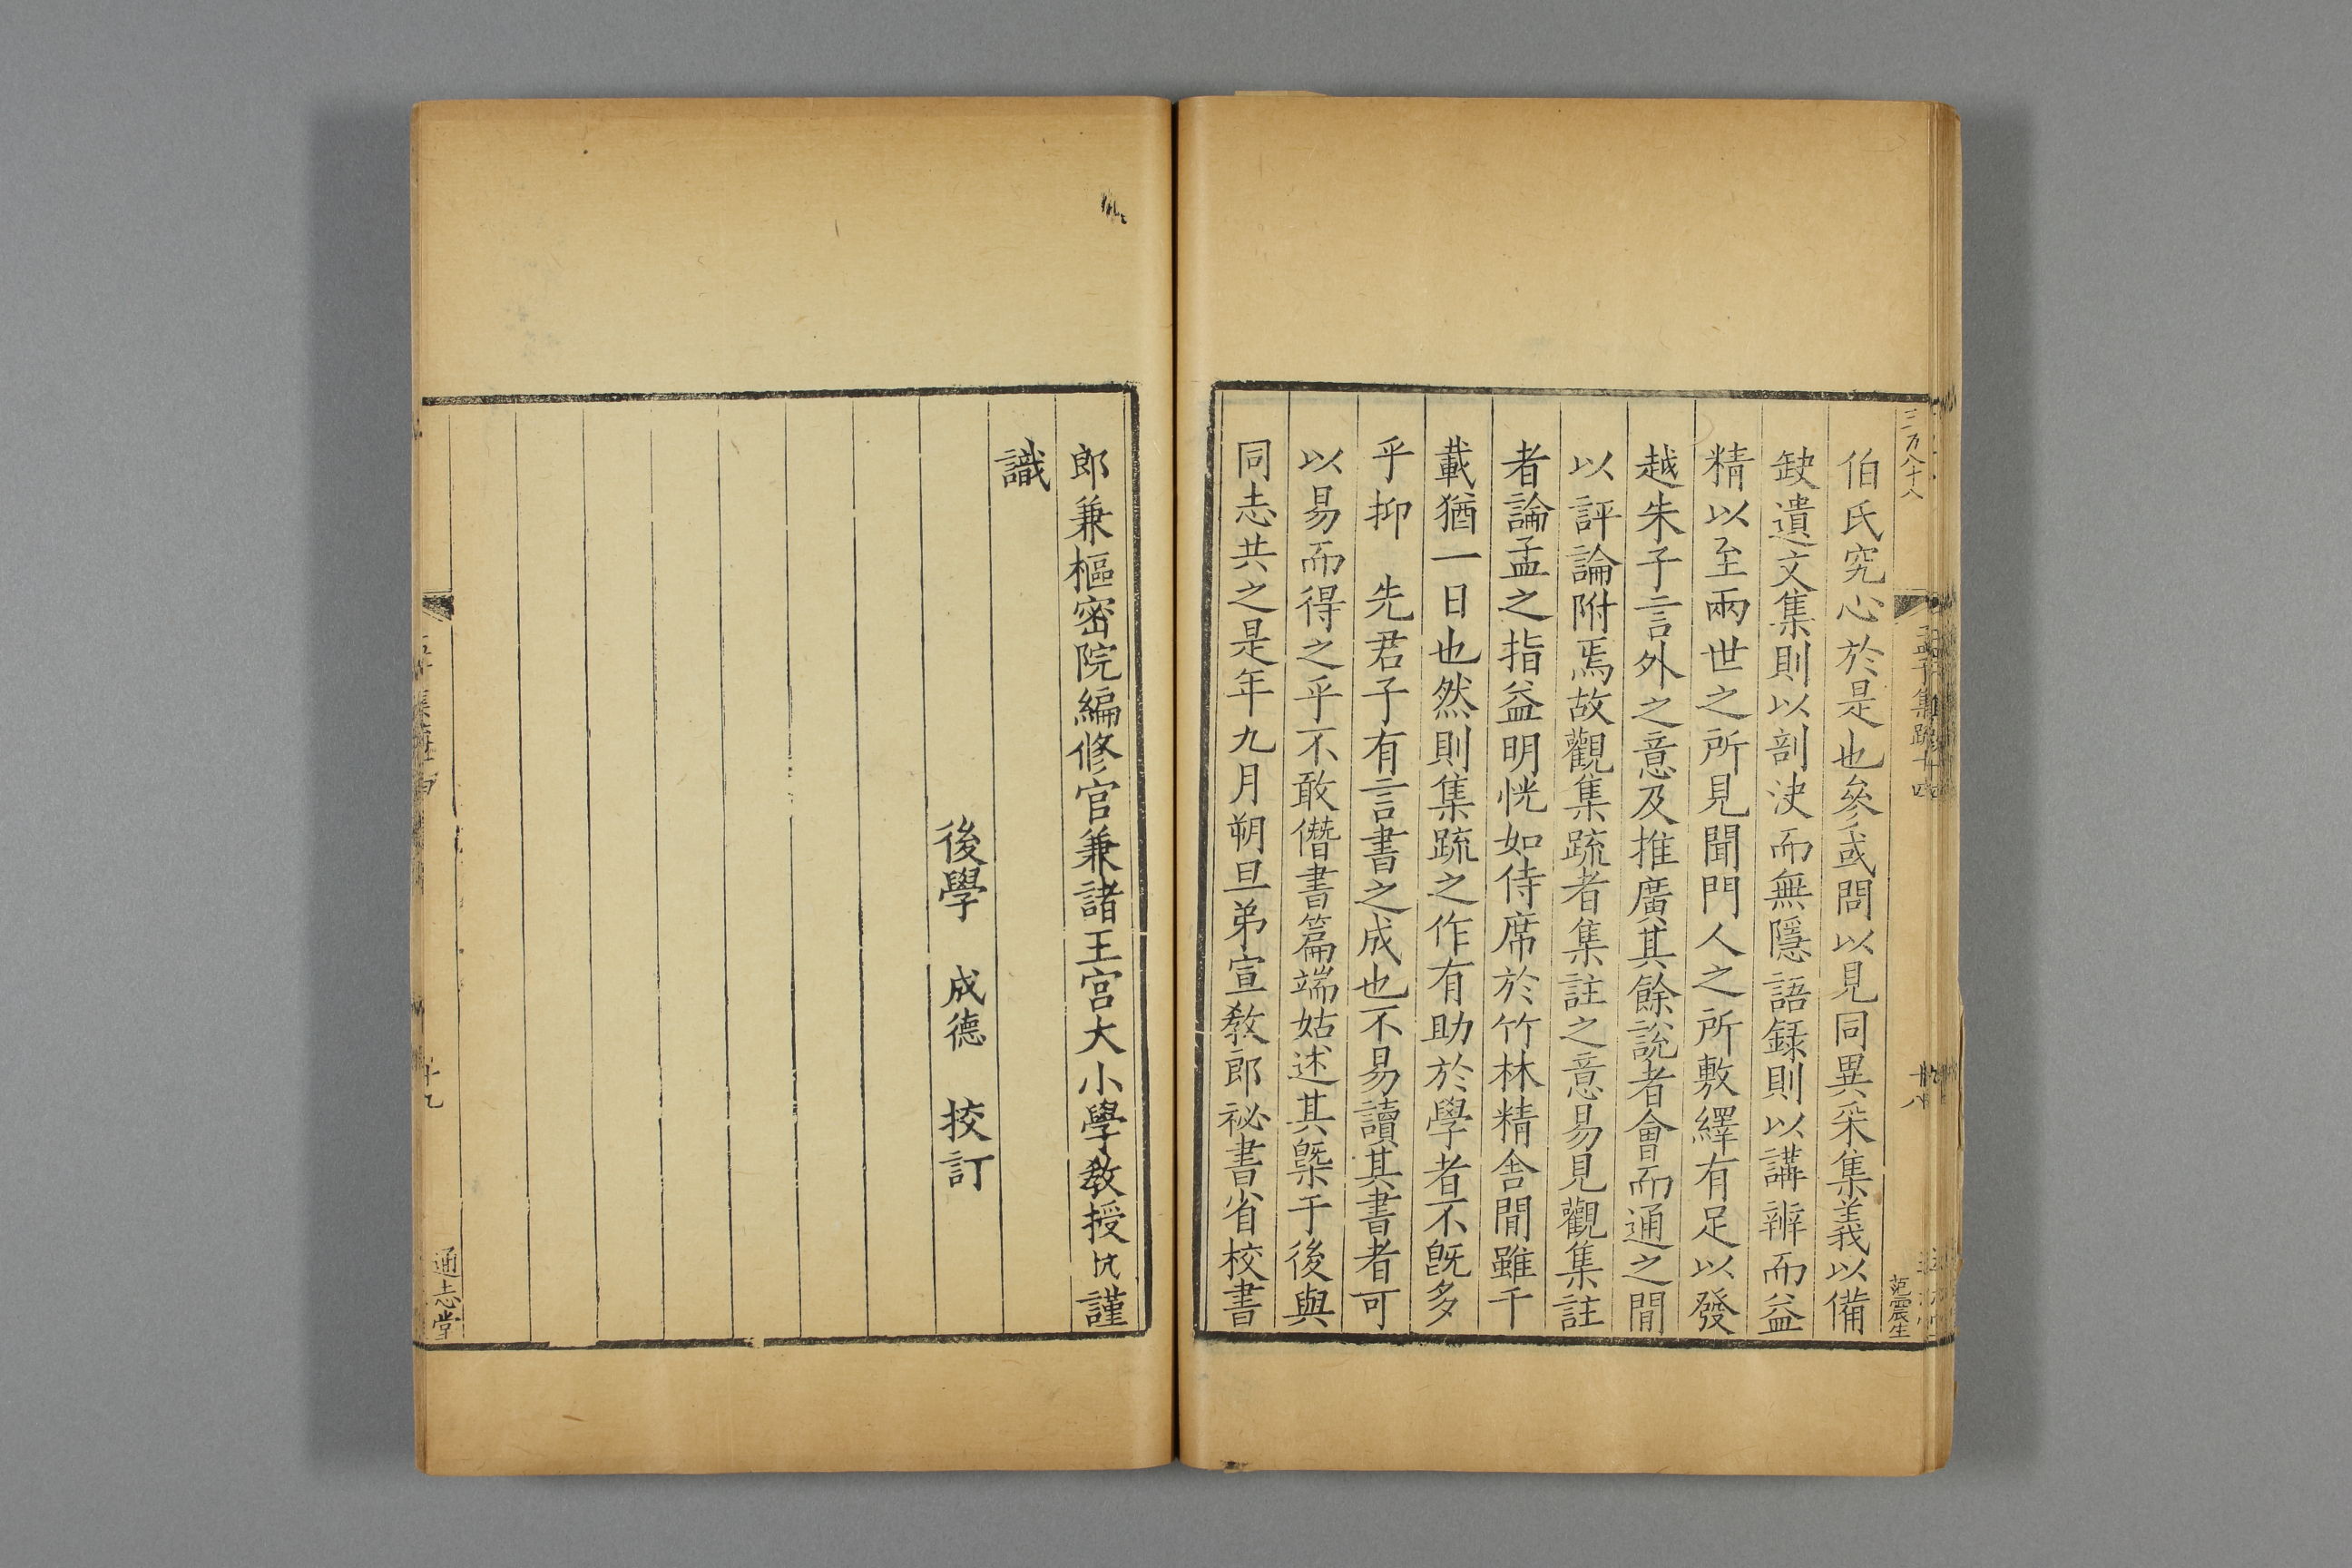 伯氏究心於是也參或問以見同異采集義以備
缺遺文集則以剖決而無隱語録則以講辨而益
精以至兩世之所見聞門人之所敷繹有足以發
越朱子言外之意及推廣其餘說者會而通之間
以評論附焉故觀集疏者集註之意易見觀集註
者論孟之指益明恍如侍席於竹林精舍間雖千
載猶一日也然則集疏之作有助於學者不旣多
乎抑　先君子有言書之成也不易讀其書者可
以易而得之乎不敢僭書篇端姑述其槩于後與
同志共之是年九月朔旦弟宣敎郎祕書省校書
郎兼樞密院編修官兼諸王宮大小學敎授杭謹
識
後學　成德　挍訂
孟子集疏十四
十八
范震生
十九
通志堂